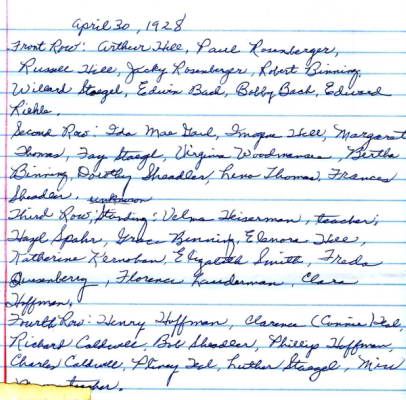 April 30, 1928
Front Row: Arthur Hill, Paul Rosenberger,
Russell Hill, Jacky Rosenberger, Robert Binning,
Willard Staegel, Edwin Bach, Bobby Bach, Edward
Riehle.
Second Row: Ida Mae Teal, Imogene Hill, Margaret
Thomas, Fay Staegl, Virginia Woodmansee Bertha
Binning, Dorothy Sheadler, Lena Thomas, Frances
Sheadler, unknown
Third Row, Standing: Velma Heiserman, teacher;
Hazel Spahr, Grace Binning, Elenora Hill,
Katherine Kernohan, Elizabeth Smith, Freda
Quisenberry, Florence Lauderman, Clara
Hoffman,
Fourth Row: Henry Hoffman, Clarence (Connie) Teal,
Richard Caldwell, Bob Sheadler, Phillip Hoffman,
Charles Caldwell, Pliney Teal, Luther Staegel, Miss
teacher.